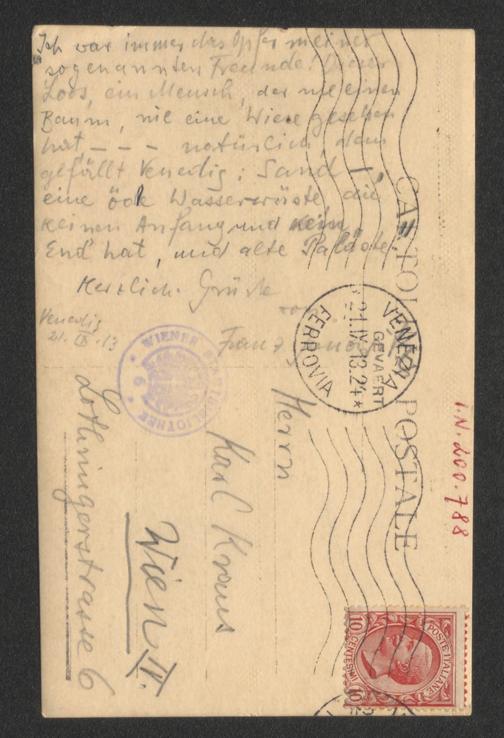 Ich war immer das Opfer meiner
sogenannten Freunde! Dieser
Loos, ein Mensch, der nie einen
Baum, nie eine Wiese gesehen
hat - - - natürlich, dem
gefällt Venedig: Sand,
eine öde Wasserwüste, die
keinen Anfang und kein
End' hat, und alte Paläste.
Herzliche Grüße
von
Franz
Venedig
21. IX. 13
CARTOLINA POSTALE
VENEZIA
FERROVIA
GEVAERT
WIENER STADTBIBLIOTHEK
6
Herrn
Karl Kraus
Wien IV.
Lothringerstrasse 6
I.N. 200.788
POSTE ITALIANE
10 CENTESIMI 10